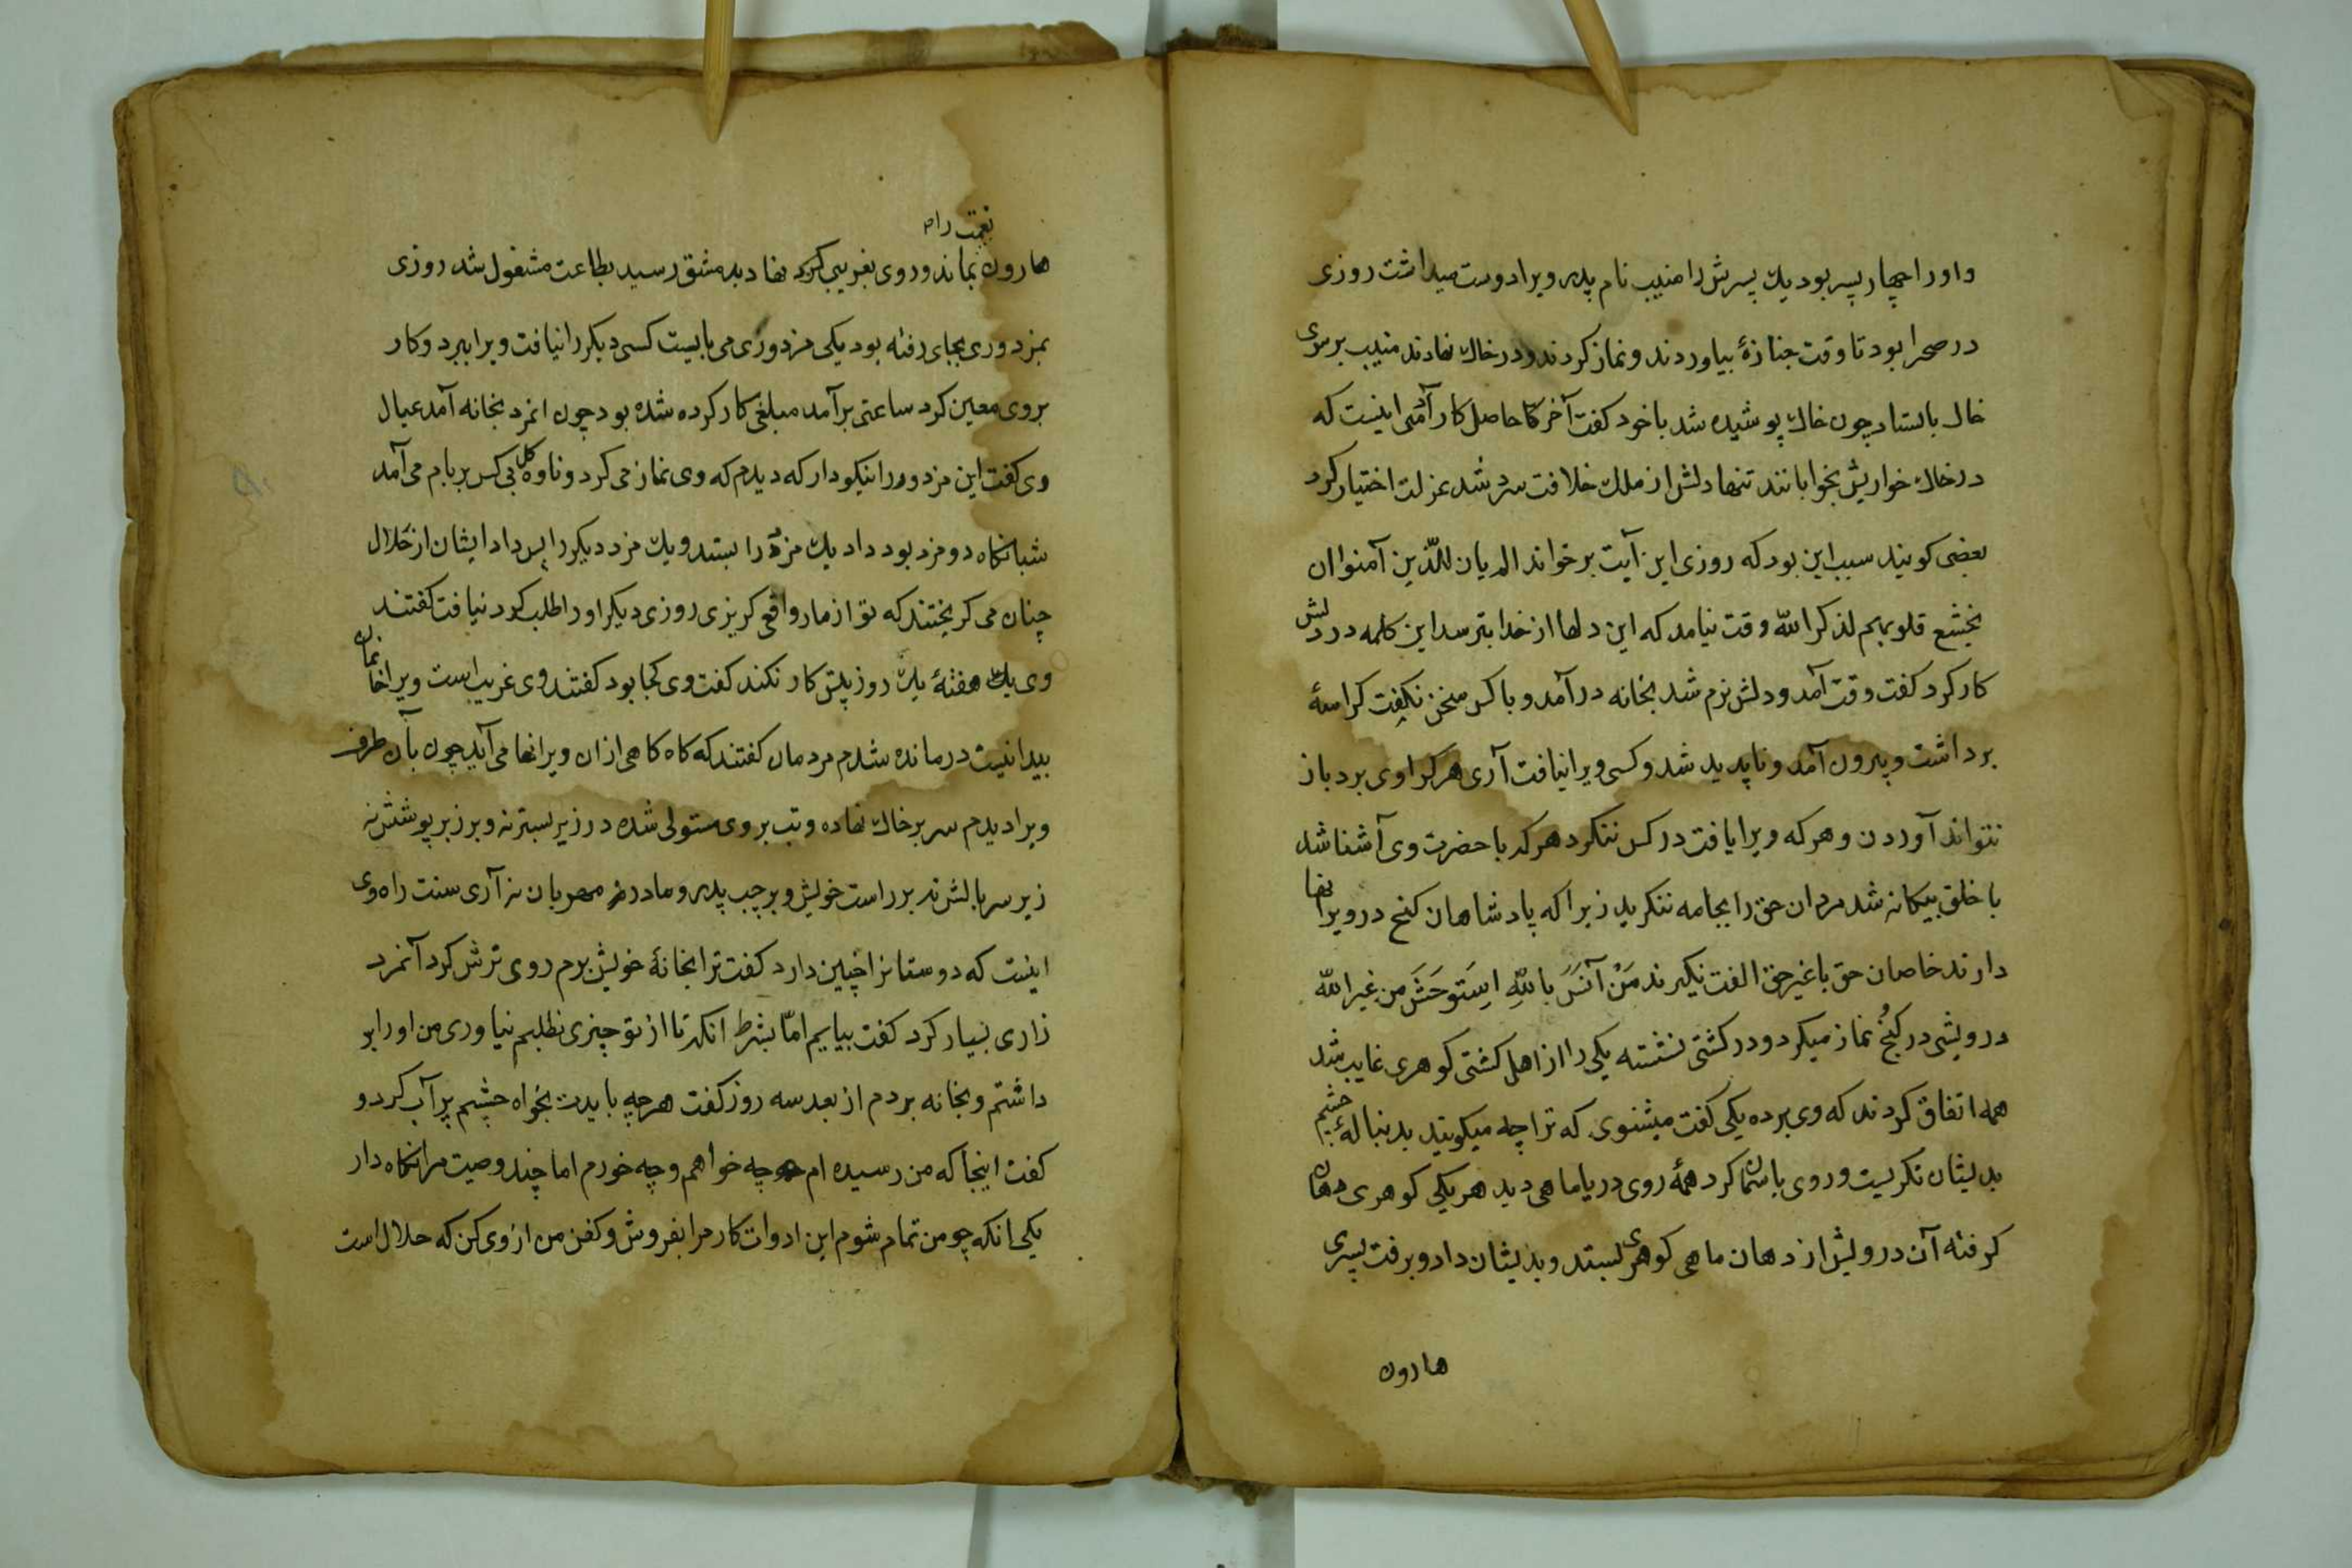 واورا چهار پسر بود یك پسرش را منیب نام پدر ویرا دوست میداشت روزی
در صحرا بود تا وقت جنازهٔ بیاوردند و نماز کردند و در خاك نهادند منیب بر سری
خاك بایستاد چون خاك پوشیده شد با خود کفت آخر کا حاصل کار آدمی اینست که
در خاك خواریش بخوابانند تنها دلش از ملك خلافت سرد شد عزلت اختیار کرد
بعضی کویند سبب این بود که روزی این آیت برخواند الم یان للذّین آمنوا ان
تخشع قلوبهم لذکر الله وقت نیامد که این دلها از خدا بترسد این کلمه در دلش
کار کرد کفت وقت آمد و دلش نرم شد بخانه درآمد و با کس سخن نکفت کراسهٔ
برداشت و بیرون آمد و ناپدید شد و کسی ویرا نیافت آری هر کرا وی برد باز
نتواند آوردن و هر که ویرا یافت در کس ننکرد هر که با حضرت وی آشنا شد
با خلق بیکانه شد مردان حق را بجامه ننکرید زیرا که پادشاهان کنج در ویرانها
دارند خاصان حق با غیر حق الفت نکیرند مَنْ آنَسَ باللّهِ استَوحَشَ من غیر الله
درویشی در کنُج نماز میکرد و در کشتی نشسته یکی را از اهل کشتی کوهری غایب شد
همه اتفاق کردند که وی برده یکی کفت میشنوی که ترا چه میکویند بدنبالهٔ چشم
بدیشان نکریست و روی باسمان کرد همهٔ روی دریا ماهی دید هر یکی کوهری دهان
کرفته آن درویش از دهان ماهی کوهری بستد و بدیشان داد و برفت پسری
هارون
نعمت رام
هارون بماند و روی بغریبی کرد نهاد بدمشق رسید بطاعت مشغول شد روزی
بمزدوری بجای رفته بود یکی مزدوری می بایست کسی دیکر را نیافت ویرا ببرد و کار
بروی معین کرد ساعتی برآمد مبلغی کار کرده شده بود چون انمرد بخانه آمد عیال
وی کفت این مزدور را نیکو دار که دیدم که وی نماز می کرد و ناوه کل بی کس بر بام می آمد
شبانکاه دو مزد بود داد یك مزد را بستد و یك مزد دیکر را پس داد ایشان از حلال
چنان می کریختند که تو از مار و افعی کریزی روزی دیکر اورا طلب کرد نیافت کفتند
وی یك هفتهٔ یك روز بیش کار نکند کفت وی کجا بود کفتند وی غریب است ویرا خانمان
بیدا نیست درمانده شدم مردمان کفتند که کاه کاهی از ان ویرانها می آید چون بآن طرف
ویرا دیدم سر بر خاك نهاده و تب بر وی مستولی شده در زیر بستر نه و بر زبر پوشش نه
زیر سر بالش نه بر راست خویش و بر چپ پدر و مادر مهربان نه آری سنت راه وی
اینست که دوستانرا چنین دارد کفت ترا بخانهٔ خویش برم روی ترش کرد آنمرد
زاری بسیار کرد کفت بیایم امّا بشرط انکه تا از تو چیزی نطلبم نیاوری من اورا بر
داشتم و بخانه بردم از بعد سه روز کفت هر چه بایدت بخواه چشم پر آب کرد و
کفت اینجا که من رسیده ام چه خواهم و چه خورم اما چند وصیت مرا نکاه دار
یکی انکه چو من تمام شوم این ادوات کار مرا بفروش و کفن من از وی کن که حلال است